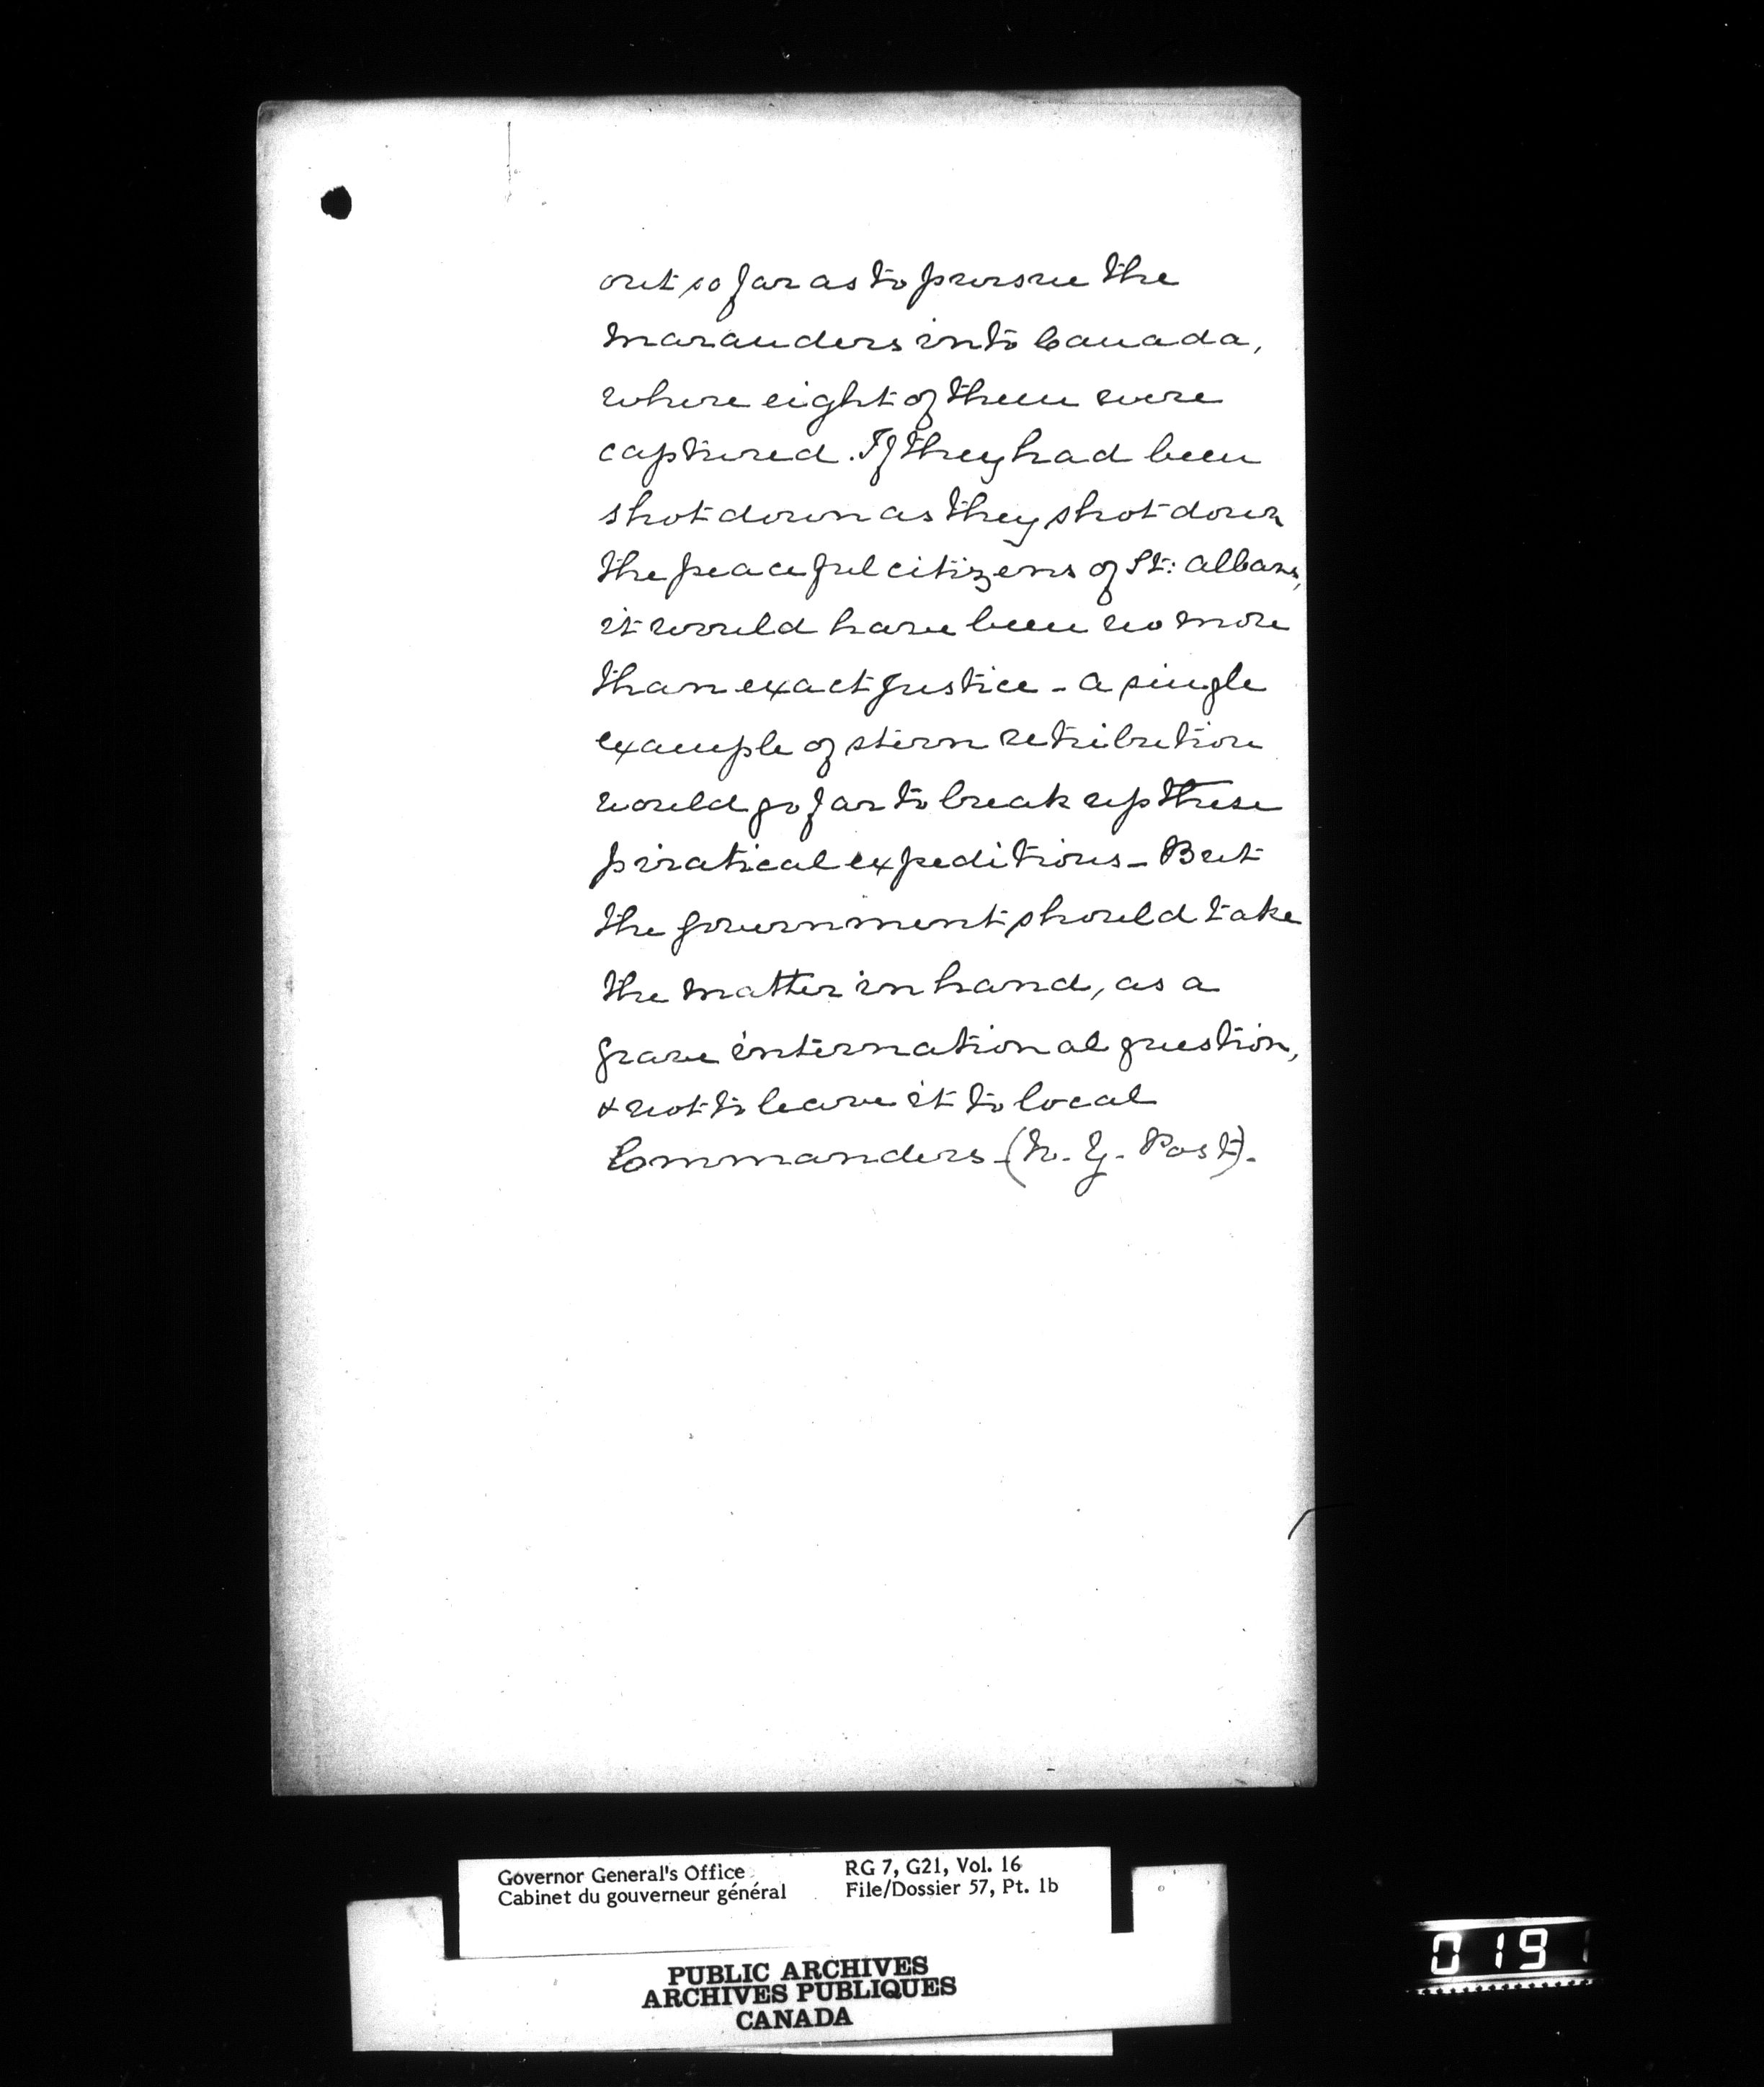 out so far as to pursue the
marauders into Canada,
where eight of them were
captured. If they had been
shot down as they shot down
the peaceful citizens of St: Albans,
it would have been no more
than exact justice - a single
example of stern retribution
would go far to break up these
piratical expeditions - But
the government should take
the matter in hand, as a
grave international question,
& not to leave it to local
Commanders - (N. Y. Post).
Governor General's Office
Cabinet du gouverneur général
RG 7, G21, Vol. 16
File/Dossier 57, Pt. 1b
PUBLIC ARCHIVES
ARCHIVES PUBLIQUES
CANADA
0191